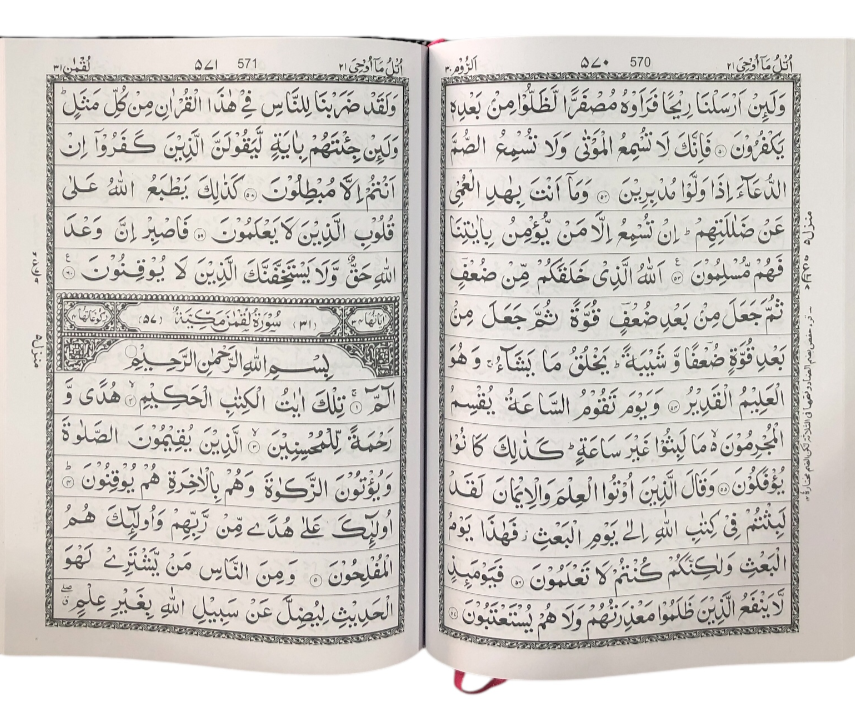 اُتْلُ مَآ اُوْحِیَ ٢١
570 ٥٧٠
اَلرُّوْم ٣٠
وَلَئِنْ اَرْسَلْنَا رِیْحًا فَرَاَوْهُ مُصْفَرًّا لَّظَلُّوْا مِنْۢ بَعْدِهٖ
یَكْفُرُوْنَ ۝٥١ فَاِنَّكَ لَا تُسْمِعُ الْمَوْتٰی وَلَا تُسْمِعُ الصُّمَّ
الدُّعَآءَ اِذَا وَلَّوْا مُدْبِرِیْنَ ۝٥٢ وَمَاۤ اَنْتَ بِهٰدِ الْعُمْیِ
عَنْ ضَلٰلَتِهِمْ ؕ اِنْ تُسْمِعُ اِلَّا مَنْ یُّؤْمِنُ بِاٰیٰتِنَا
فَهُمْ مُّسْلِمُوْنَ ۝٥٣ اَللّٰهُ الَّذِیْ خَلَقَكُمْ مِّنْ ضُعْفٍ
ثُمَّ جَعَلَ مِنْۢ بَعْدِ ضُعْفٍ قُوَّةً ثُمَّ جَعَلَ مِنْۢ
بَعْدِ قُوَّةٍ ضُعْفًا وَّ شَیْبَةً ؕ یَخْلُقُ مَا یَشَآءُ ۚ وَ هُوَ
الْعَلِیْمُ الْقَدِیْرُ ۝٥٤ وَیَوْمَ تَقُوْمُ السَّاعَةُ یُقْسِمُ
الْمُجْرِمُوْنَ ۙ۬ مَا لَبِثُوْا غَیْرَ سَاعَةٍ ؕ كَذٰلِكَ كَانُوْا
یُؤْفَكُوْنَ ۝٥٥ وَقَالَ الَّذِیْنَ اُوْتُوا الْعِلْمَ وَالْاِیْمَانَ لَقَدْ
لَبِثْتُمْ فِیْ كِتٰبِ اللّٰهِ اِلٰی یَوْمِ الْبَعْثِ ؗ فَهٰذَا یَوْمُ
الْبَعْثِ وَلٰكِنَّكُمْ كُنْتُمْ لَا تَعْلَمُوْنَ ۝٥٦ فَیَوْمَئِذٍ
لَّا یَنْفَعُ الَّذِیْنَ ظَلَمُوْا مَعْذِرَتُهُمْ وَلَا هُمْ یُسْتَعْتَبُوْنَ ۝٥٧
منزل ٥
اُتْلُ مَآ اُوْحِیَ ٢١
571 ٥٧١
لُقْمٰن ٣١
وَلَقَدْ ضَرَبْنَا لِلنَّاسِ فِیْ هٰذَا الْقُرْاٰنِ مِنْ كُلِّ مَثَلٍ ؕ
وَلَئِنْ جِئْتَهُمْ بِاٰیَةٍ لَّیَقُوْلَنَّ الَّذِیْنَ كَفَرُوْۤا اِنْ
اَنْتُمْ اِلَّا مُبْطِلُوْنَ ۝٥٨ كَذٰلِكَ یَطْبَعُ اللّٰهُ عَلٰی
قُلُوْبِ الَّذِیْنَ لَا یَعْلَمُوْنَ ۝٥٩ فَاصْبِرْ اِنَّ وَعْدَ
اللّٰهِ حَقٌّ وَّلَا یَسْتَخِفَّنَّكَ الَّذِیْنَ لَا یُوْقِنُوْنَ ۝٦٠
اٰیَاتُهَا ٣٤ (٣١) سُوْرَةُ لُقْمٰنَ مَكِّیَّةٌ (٥٧) رُكُوْعَاتُهَا ٤
بِسْمِ اللّٰهِ الرَّحْمٰنِ الرَّحِیْمِ
الٓمّٓ ۝١ تِلْكَ اٰیٰتُ الْكِتٰبِ الْحَكِیْمِ ۝٢ هُدًی وَّ
رَحْمَةً لِّلْمُحْسِنِیْنَ ۝٣ الَّذِیْنَ یُقِیْمُوْنَ الصَّلٰوةَ
وَیُؤْتُوْنَ الزَّكٰوةَ وَهُمْ بِالْاٰخِرَةِ هُمْ یُوْقِنُوْنَ ۝٤
اُولٰٓئِكَ عَلٰی هُدًی مِّنْ رَّبِّهِمْ وَاُولٰٓئِكَ هُمُ
الْمُفْلِحُوْنَ ۝٥ وَمِنَ النَّاسِ مَنْ یَّشْتَرِیْ لَهْوَ
الْحَدِیْثِ لِیُضِلَّ عَنْ سَبِیْلِ اللّٰهِ بِغَیْرِ عِلْمٍ
منزل ٥